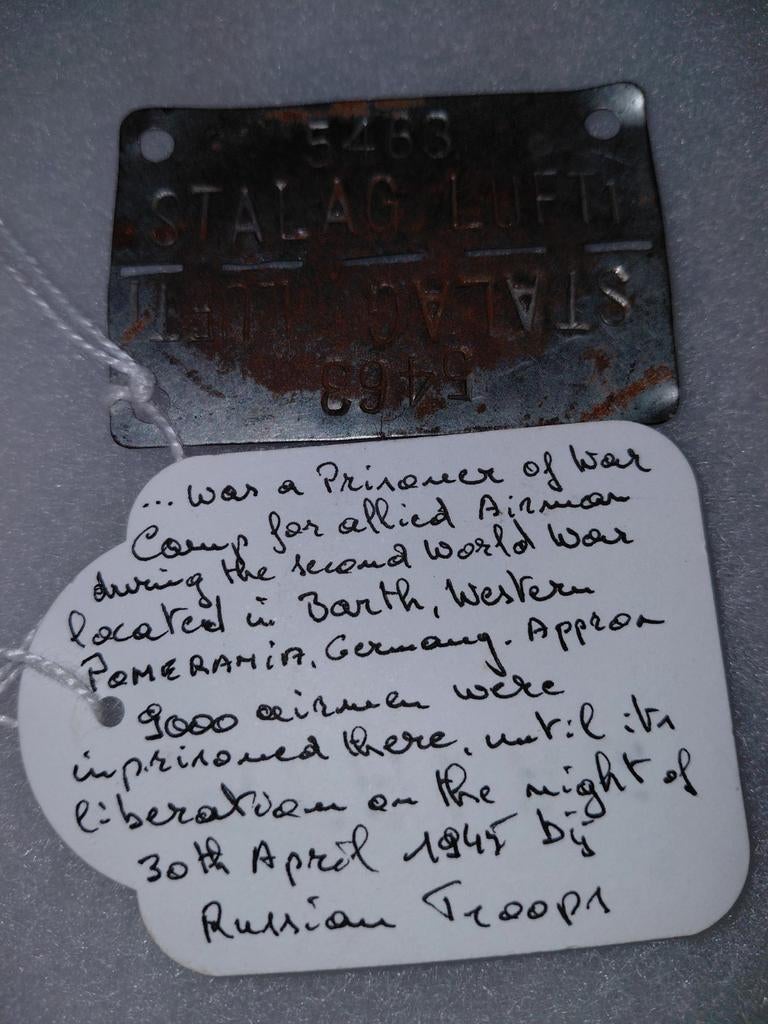 5463
STALAG LUFT1
STALAG LUFT1
5463
... was a Prisoner of War
Camp for allied Airman
during the second World War
located in Barth, Western
POMERAMIA, Germany. Approx
9000 airmen were
inprisoned there, until its
liberation on the night of
30th April 1945 by
Russian Troops